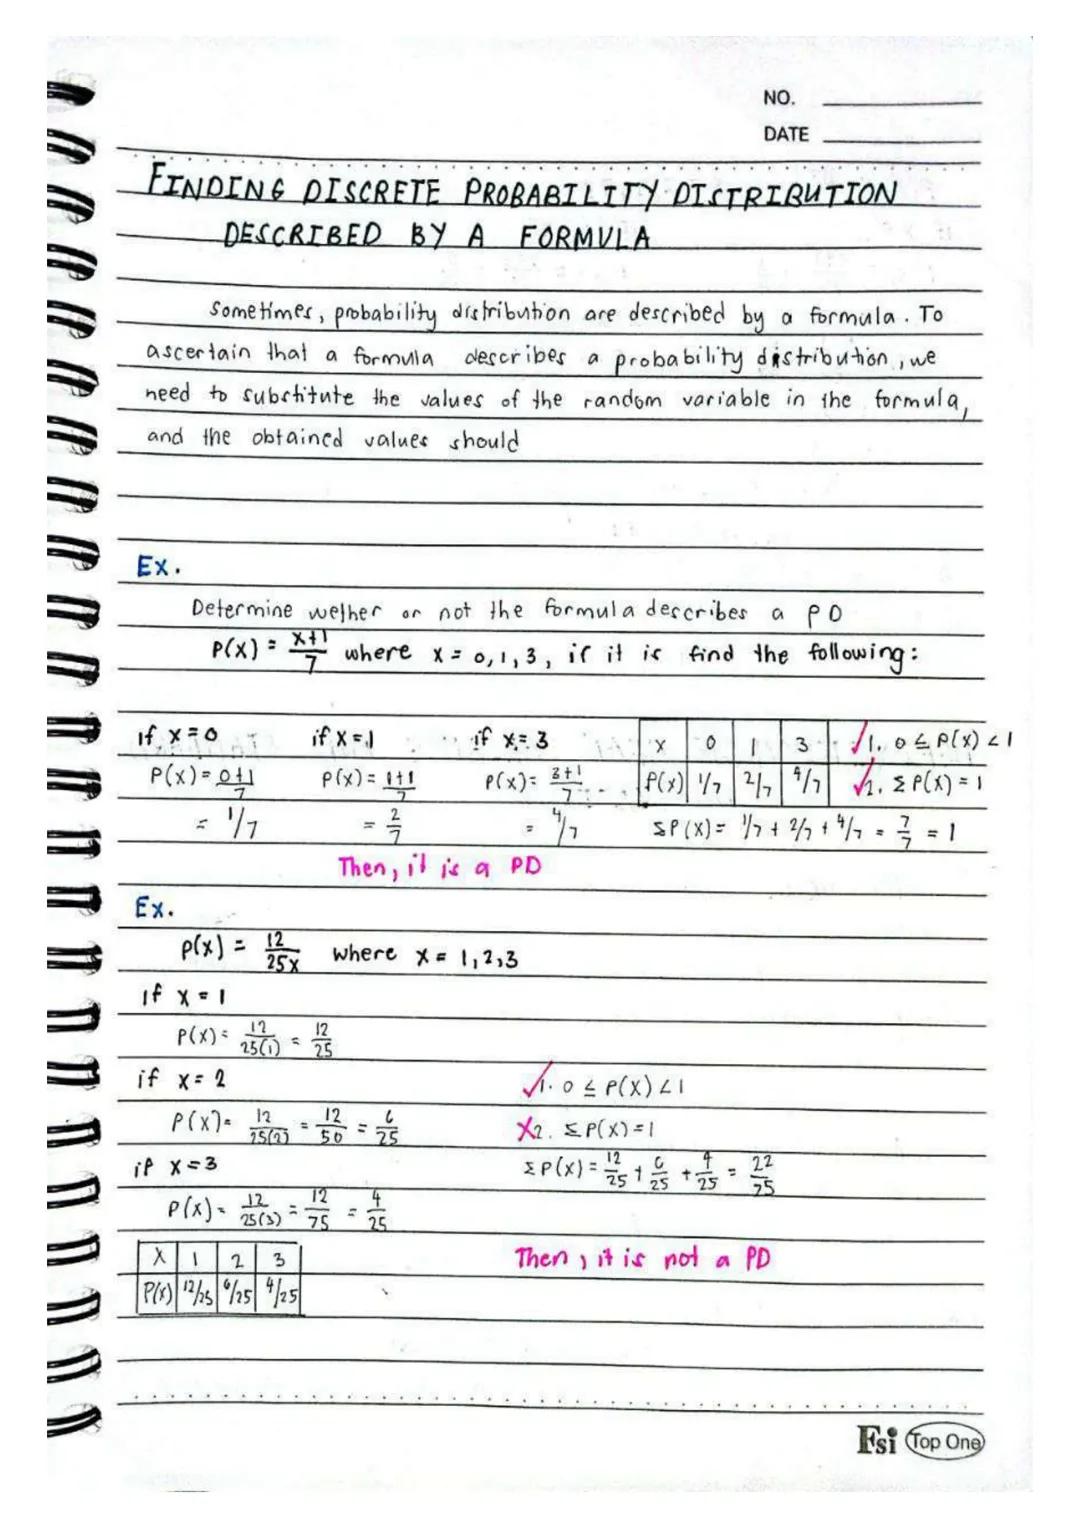 NO.
DATE
FINDING DISCRETE PROBABILITY DISTRIBUTION
DESCRIBED BY A FORMULA
Sometimes, probability distribution are described by a formula. To
ascertain that a formula describes a probability distribution, we
need to substitute the values of the random variable in the formula,
and the obtained values should
Ex.
Determine wether or not the formula describes a PD
P(X) = X+1/7 where X = 0,1,3, if it is find the following:
if X=0 if X=1 if X=3
P(X) = 0+1/7 P(X) = 1+1/7 P(X) = 3+1/7
= 1/7 = 2/7 = 4/7
X 0 1 3
P(X) 1/7 2/7 4/7
✓1. 0 ≤ P(X) < 1
✓2. Σ P(X) = 1
ΣP(X) = 1/7 + 2/7 + 4/7 = 7/7 = 1
Then, it is a PD
Ex.
P(X) = 12/25X where X = 1,2,3
if X = 1
P(X) = 12/25(1) = 12/25
if X = 2
P(X) = 12/25(2) = 12/50 = 6/25
if X = 3
P(X) = 12/25(3) = 12/75 = 4/25
X 1 2 3
P(X) 12/25 6/25 4/25
✓1. 0 ≤ P(X) < 1
X2. ΣP(X) = 1
ΣP(X) = 12/25 + 6/25 + 4/25 = 22/25
Then, it is not a PD
Fsi Top One